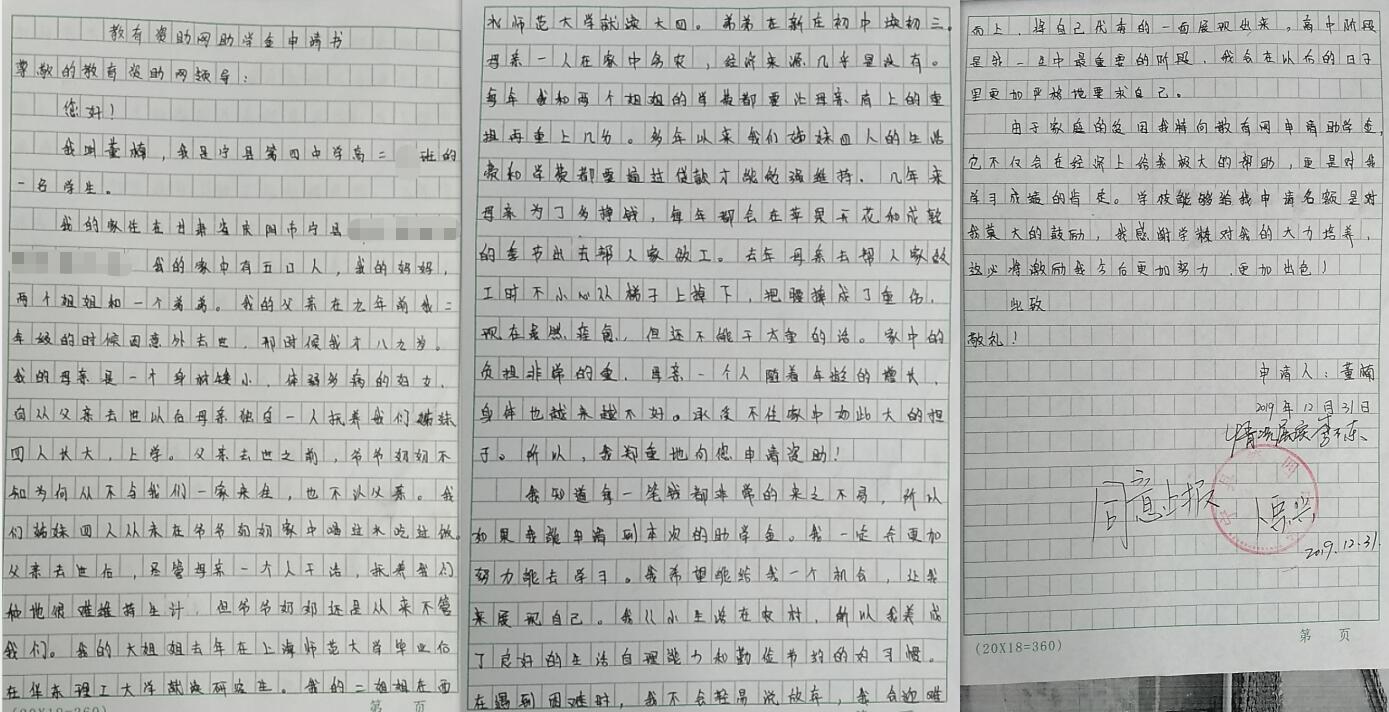 教育资助网助学金申请书
尊敬的教育资助网领导：
您好！
我叫董楠，我是宁县第四中学高二 班的
一名学生。
我的家住在甘肃省庆阳市宁县
我的家中有五口人，我的妈妈，
两个姐姐和一个弟弟。我的父亲在九年前我二
年级的时候因意外去世，那时候我才八九岁。
我的母亲是一个身材矮小，体弱多病的妇女，
自从父亲去世以后母亲独自一人抚养我们姊妹
四人长大，上学。父亲去世之前，爷爷奶奶不
知为何从不与我们一家来往，也不认父亲。我
们姊妹四人从未在爷爷奶奶家中喝过水吃过饭。
父亲去世后，尽管母亲一个人干活，抚养我们
和地很难维持生计，但爷爷奶奶还是从来不管
我们。我的大姐姐去年在上海师范大学毕业后
在华东理工大学就读研究生。我的二姐姐在西
(20X18=360) 第 页
北师范大学就读大四。弟弟在新庄初中读初三。
母亲一人在家中务农，经济来源几乎是没有。
每年我和两个姐姐的学费都要让母亲肩上的重
担再重上几分。多年以来我们姊妹四人的生活
费和学费都要通过贷款才能勉强维持。几年来
母亲为了多挣钱，每年都会在苹果开花和成熟
的季节出去帮人家做工。去年母亲去帮人家做
工时不小心从梯子上掉下，把腰摔成了重伤，
现在虽然痊愈，但还不能干太重的活。家中的
负担非常的重，母亲一个人随着年龄的增长，
身体也越来越不好。承受不住家中如此大的担
子。所以，我郑重地向您申请资助！
我知道每一笔钱都非常的来之不易，所以
如果我能申请到本次的助学金。我一定会更加
努力能去学习。我希望能给我一个机会，让我
来展现自己。我从小生活在农村，所以我养成
了良好的生活自理能力和勤俭节约的好习惯。
在遇到困难时，我不会轻易说放弃，我会迎难
而上，将自己优秀的一面展现出来。高中阶段
是我一生中最重要的阶段，我会在以后的日子
里更加严格地要求自己。
由于家庭的贫困我特向教育网申请助学金，
它不仅会在经济上给我极大的帮助，更是对我
学习成绩的肯定。学校能够给我申请名额是对
我莫大的鼓励，我感谢学校对我的大力培养，
这必将激励我今后更加努力，更加出色！
此致
敬礼！
申请人：董楠
2019年12月31日
情况属实
同意上报
2019.12.31.
(20X18=360) 第 页